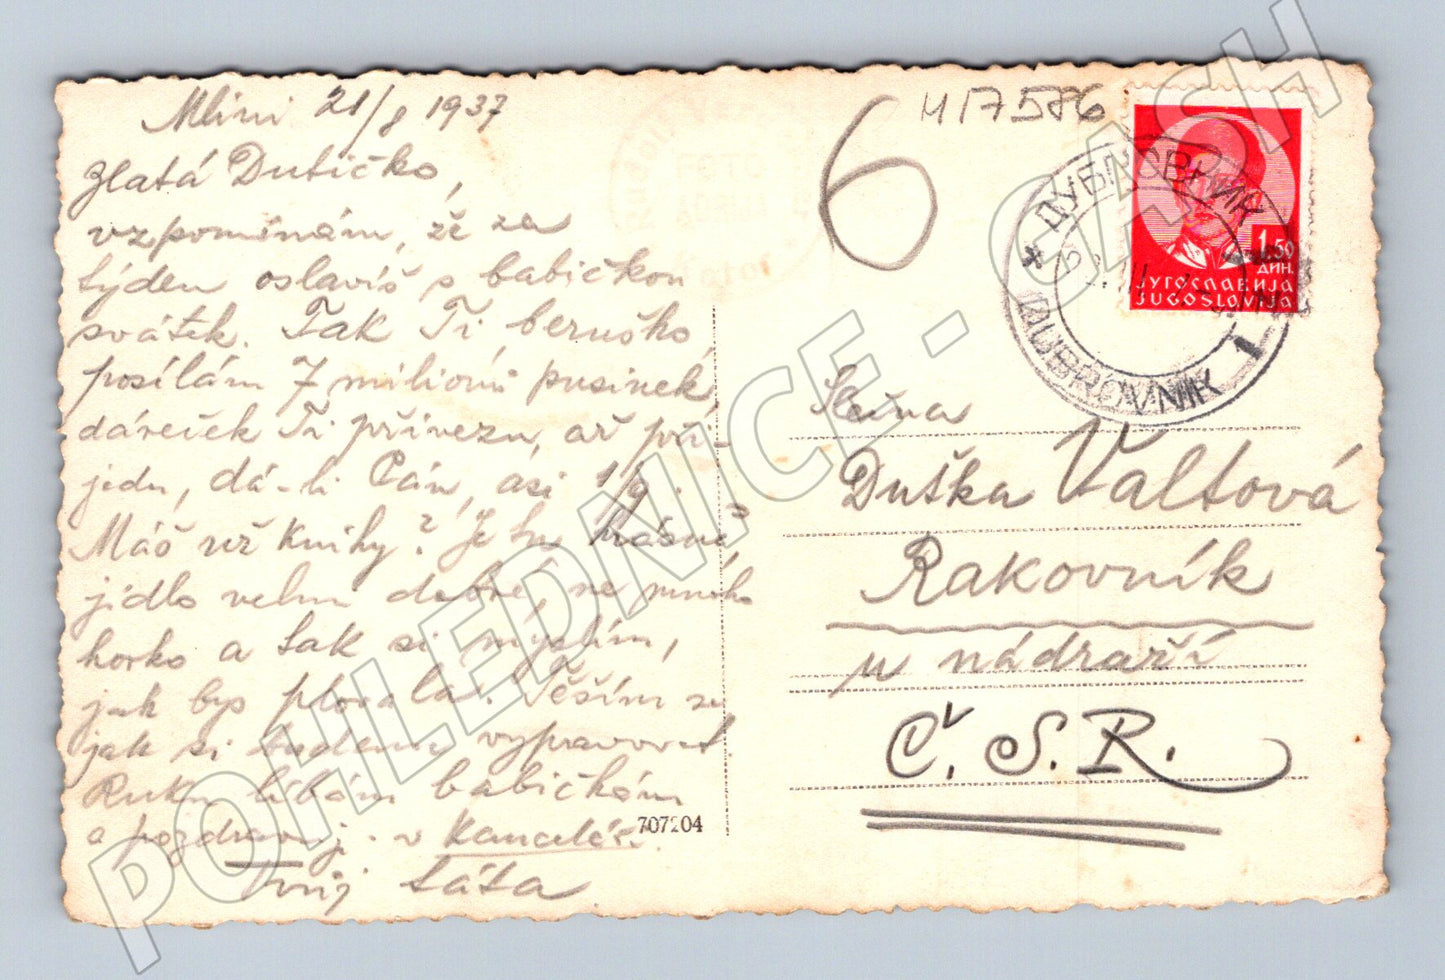 Mlini 21/8 1937
Zlatá Dušičko,
vzpomínám, že za
týden oslavíš s babičkou
svátek. Tak Ti, beruško
posílám 7 milionů pusinek,
dáreček Ti přivezu, až při-
jedu, dá-li Pán, asi 1/9.
Máš už knihy? Je tu krásně
jídlo velmi dobré, ne mnoho
horko a tak si myslím,
jak bys plovala. Těším se
jak si budeme vypravovat.
Ruku líbám babičkám
a pozdravuj v kanceláři.
Tvůj táta
707204
6
417586
FOTO
ADRIJA
ДУБРОВНИК
DUBROVNIK 1
1.50
ДИН.
ЈУГОСЛАВИЈА
JUGOSLAVIJA
Slečna
Duška Valtová
Rakovník
u nádraží
Č.S.R.
POHLEDNICE - CASH